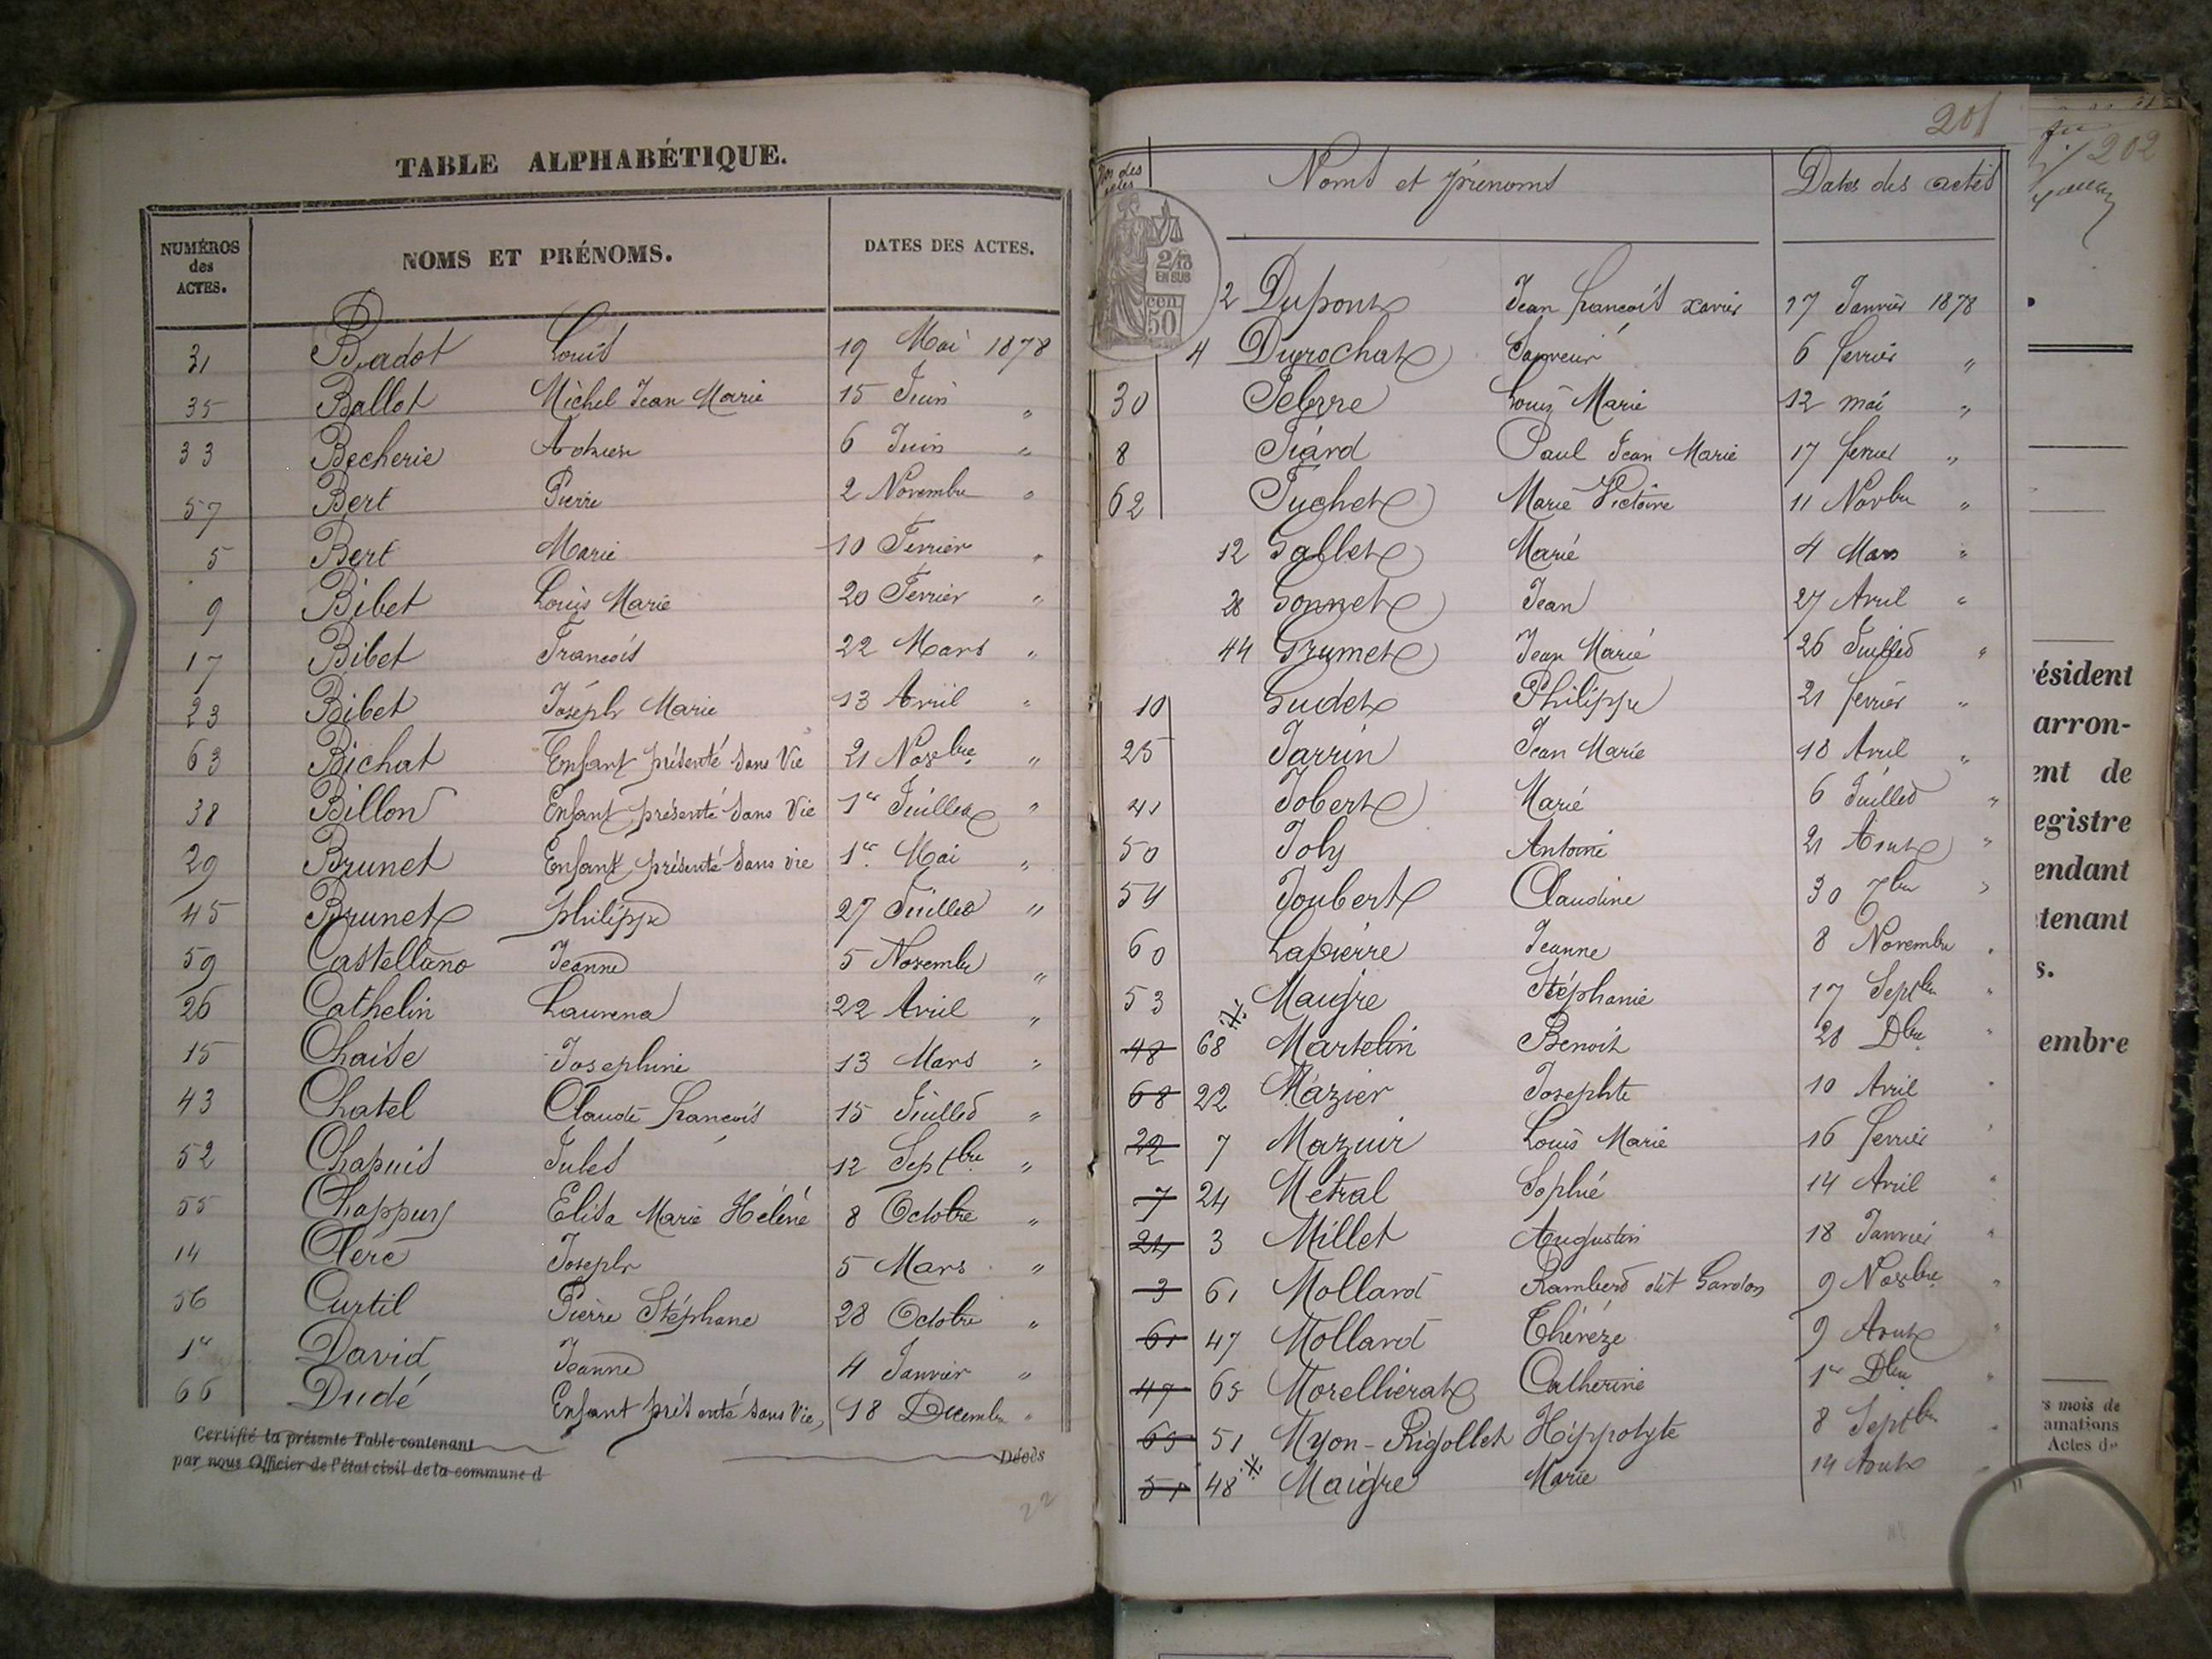 TABLE ALPHABÉTIQUE.
NUMÉROS des ACTES. NOMS ET PRÉNOMS. DATES DES ACTES.
31 Badot Louis 19 Mai 1878
35 Ballot Michel Jean Marie 15 Juin "
33 Becherie Adrien 6 Juin "
57 Bert Pierre 2 Novembre "
5 Bert Marie 10 Fevrier "
9 Bibet Louis Marie 20 Fevrier "
17 Bibet François 22 Mars "
23 Bibet Joseph Marie 13 Avril "
63 Bichat Enfant présenté sans Vie 21 Novbre "
38 Billon Enfant présenté sans Vie 1er Juillet "
29 Brunet Enfant présenté sans vie 1er Mai "
45 Brunet philippe 27 Juillet "
59 Castellano Jeanne 5 Novembre "
26 Cathelin Laurena 22 Avril "
15 Chaise Josephine 13 Mars "
43 Chatel Claude françois 15 Juillet "
52 Chapuis Jules 12 Septbre "
55 Chappuy Elisa Marie Hélène 8 Octobre "
14 Clerc Joseph 5 Mars "
56 Curtil Pierre Stéphane 28 Octobre "
1er David Jeanne 4 Janvier "
66 Dudé Enfant présenté sans Vie, 18 Decembre "
Certifié la présente Table contenant Décès
par nous Officier de l'état civil de la commune d
22
201
Nos des actes Noms et prénoms Dates des actes
2/10 EN SUS
50 cen
2 Dupont Jean françois xavier 17 Janvier 1878
4 Dupochat Sauveur 6 fevrier "
30 Febvre Louis Marie 12 mai "
8 Fiard Paul Jean Marie 17 fevrier "
62 Fuchet Marie Victoire 11 Novbre "
12 Gallet Marie 4 Mars "
28 Gonnet Jean 27 Avril "
44 Grumet Jean Marie 26 Juillet "
10 Gudet Philippe 21 fevrier "
25 Jarrin Jean Marie 18 Avril "
41 Jobert Marie 6 Juillet "
50 Joly Antoine 21 Aout "
54 Joubert Claudine 30 7bre "
60 Lapierre Jeanne 8 Novembre "
53 Maigre Stéphanie 17 Septbre "
48 68 Martelin Benoit 28 Dbre "
68 22 Mazier Josephte 10 Avril "
22 7 Mazuir Louis Marie 16 fevrier "
7 24 Metral Sophie 14 Avril "
24 3 Millet Augustin 18 Janvier "
3 61 Mollard Rambert dit Gardon 9 Novbre "
61 47 Mollard Thérèze 9 Aout "
47 65 Morellierat Catherine 1er Dbre "
65 51 Myon-Rigollet Hippolyte 8 Septbre "
51 48 Maigre Marie 14 Aout "
202
ésident
arron-
ent de
egistre
endant
tenant
s.
embre
s mois de
amations
Actes de